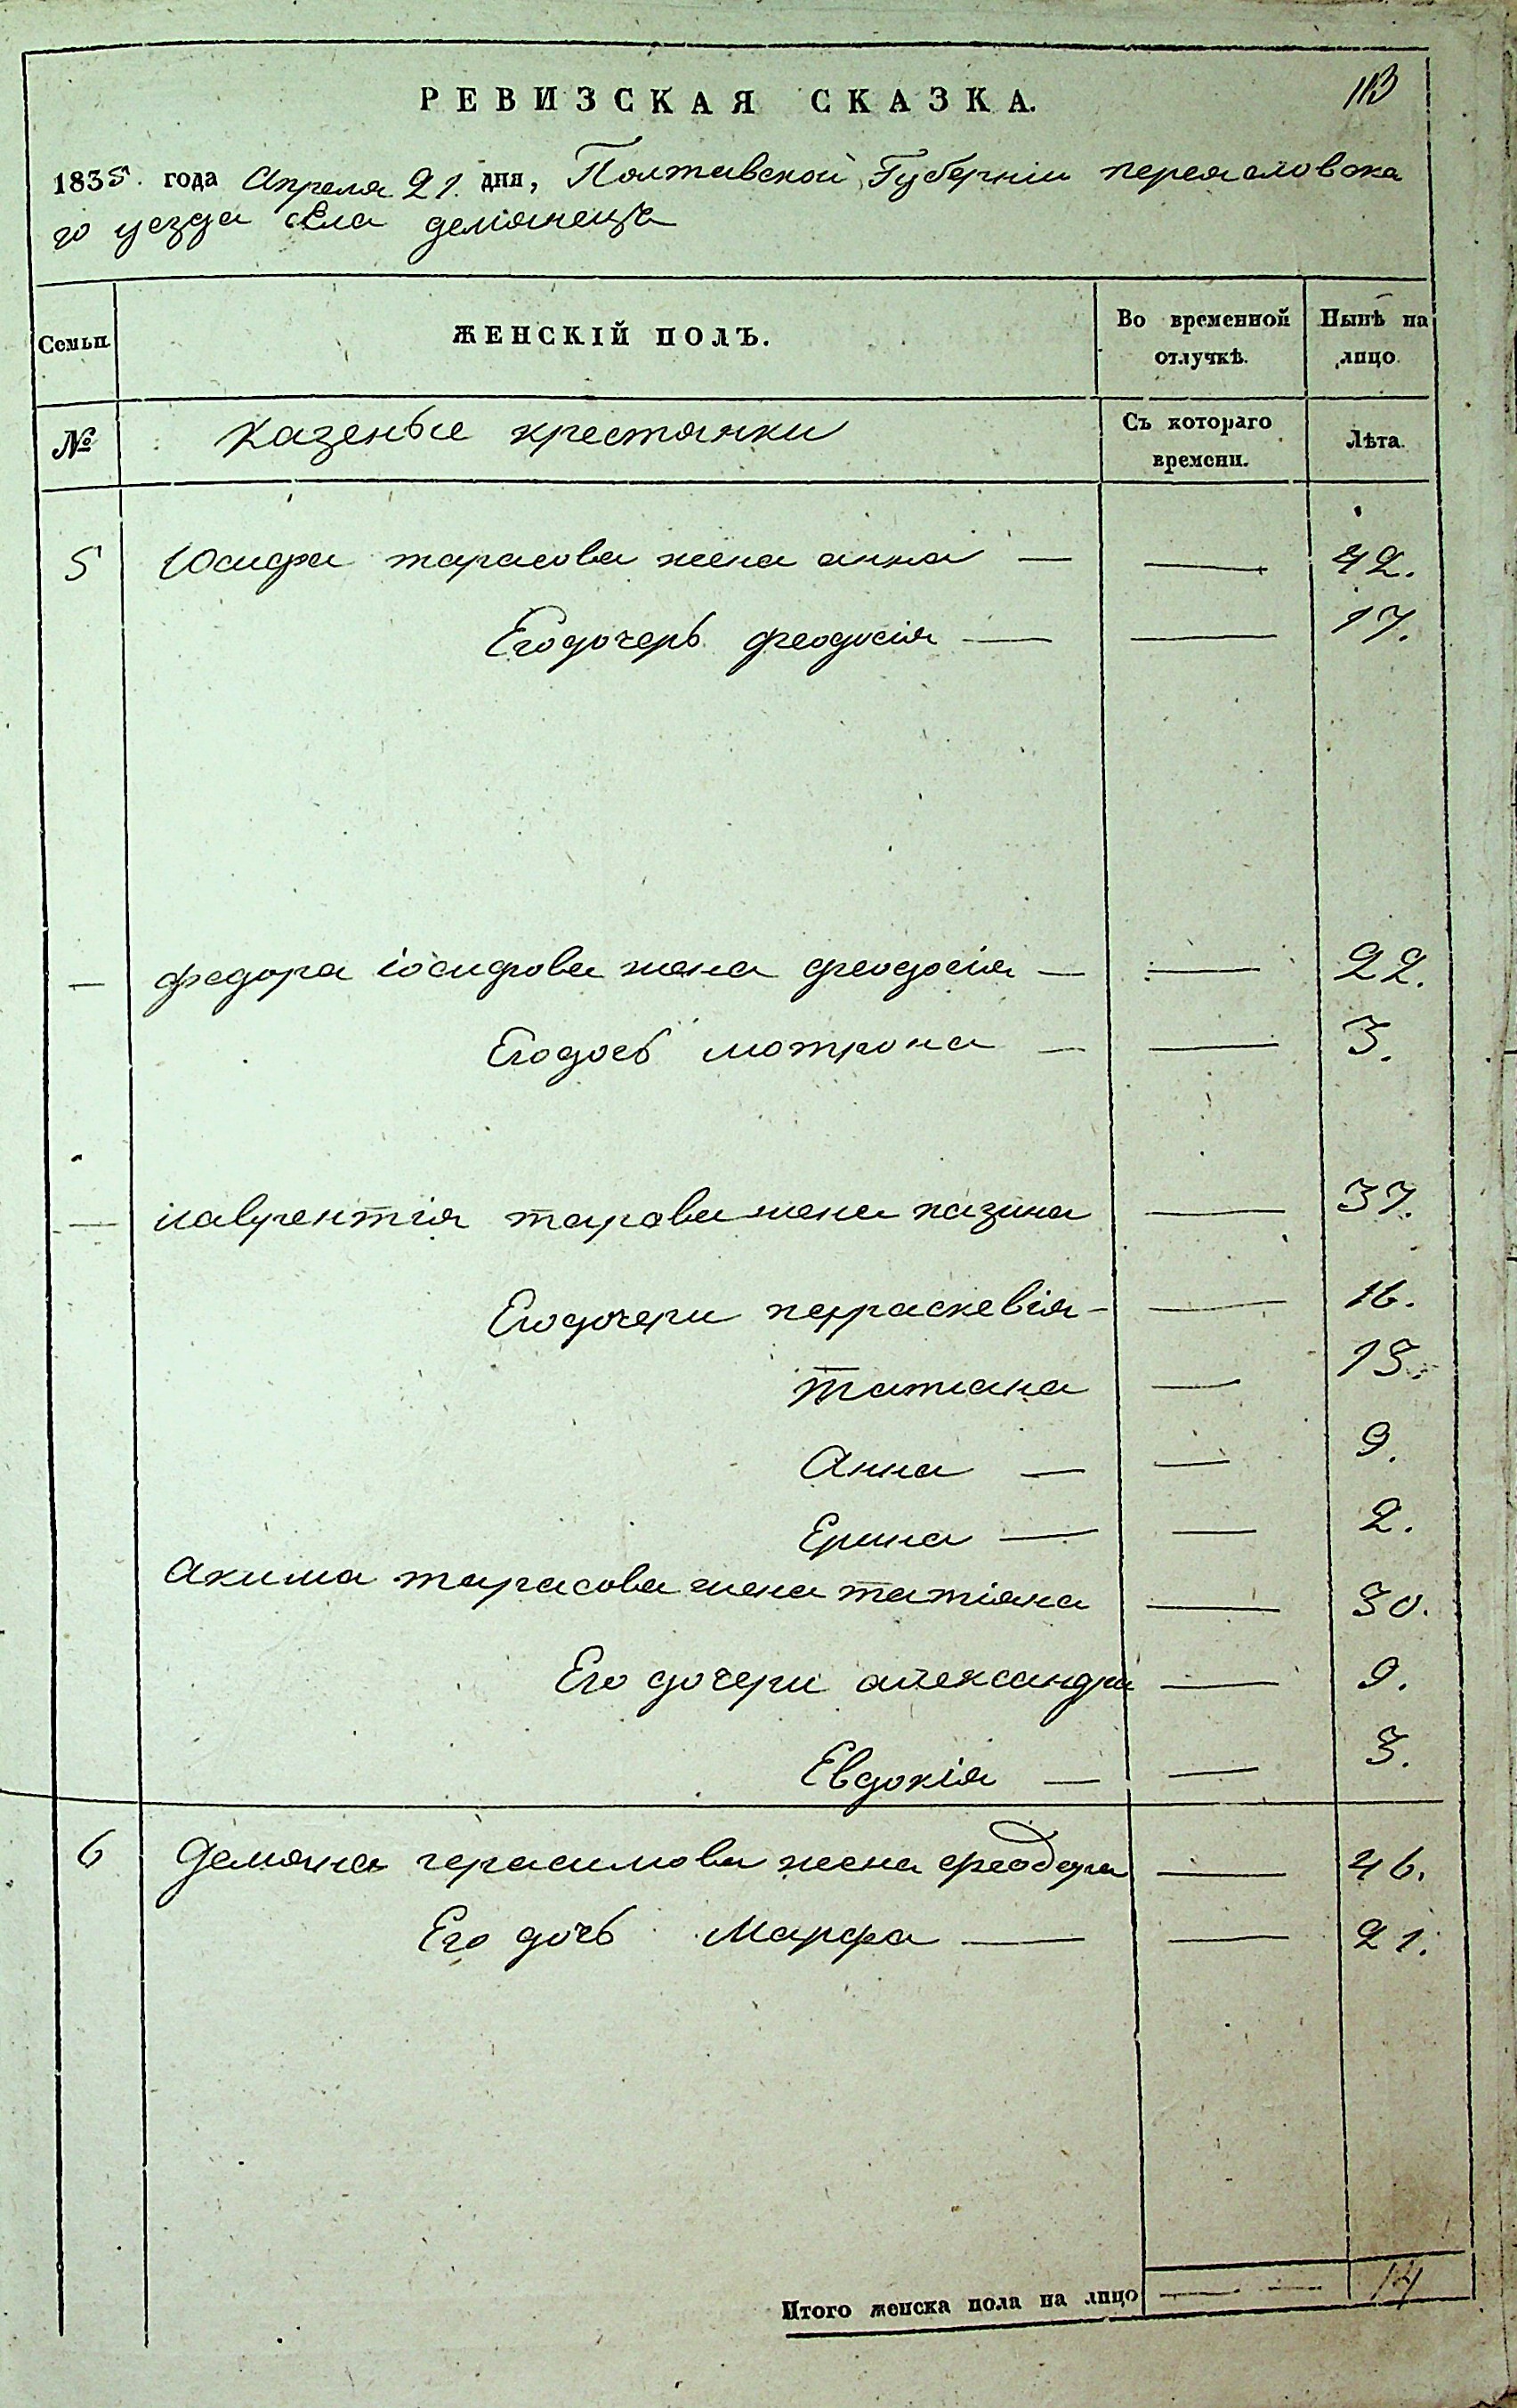 113
РЕВИЗСКАЯ СКАЗКА.
1835. года Апреля 21. дня, Полтавской Губерніи переясловска
го уезда села демянеца
Семьи. ЖЕНСКІЙ ПОЛЪ. Во временной отлучкѣ. Нынѣ на лицо.
№ Казенные крестянки Съ котораго времени. Лѣта.
5 Юсифа тарасова жена анна — — 42.
Егодочерь феодосія — — 17.
— федора іосифова жена феодосія — — 22.
Егодочь мотрона — — 3.
— лаврентія тарова жена пазина — 37.
Егодочери перраскевія — — 16.
татиана — 13.
Анна — — 9.
Ерина — — 2.
Акима тарасова жена татіяна — 30.
Его дочери александра — 9.
Евдокія — — 3.
6 Демяна герасимова жена феодора — 46.
Его дочь Марфа — — 21.
Итого женска пола на лицо — — 14